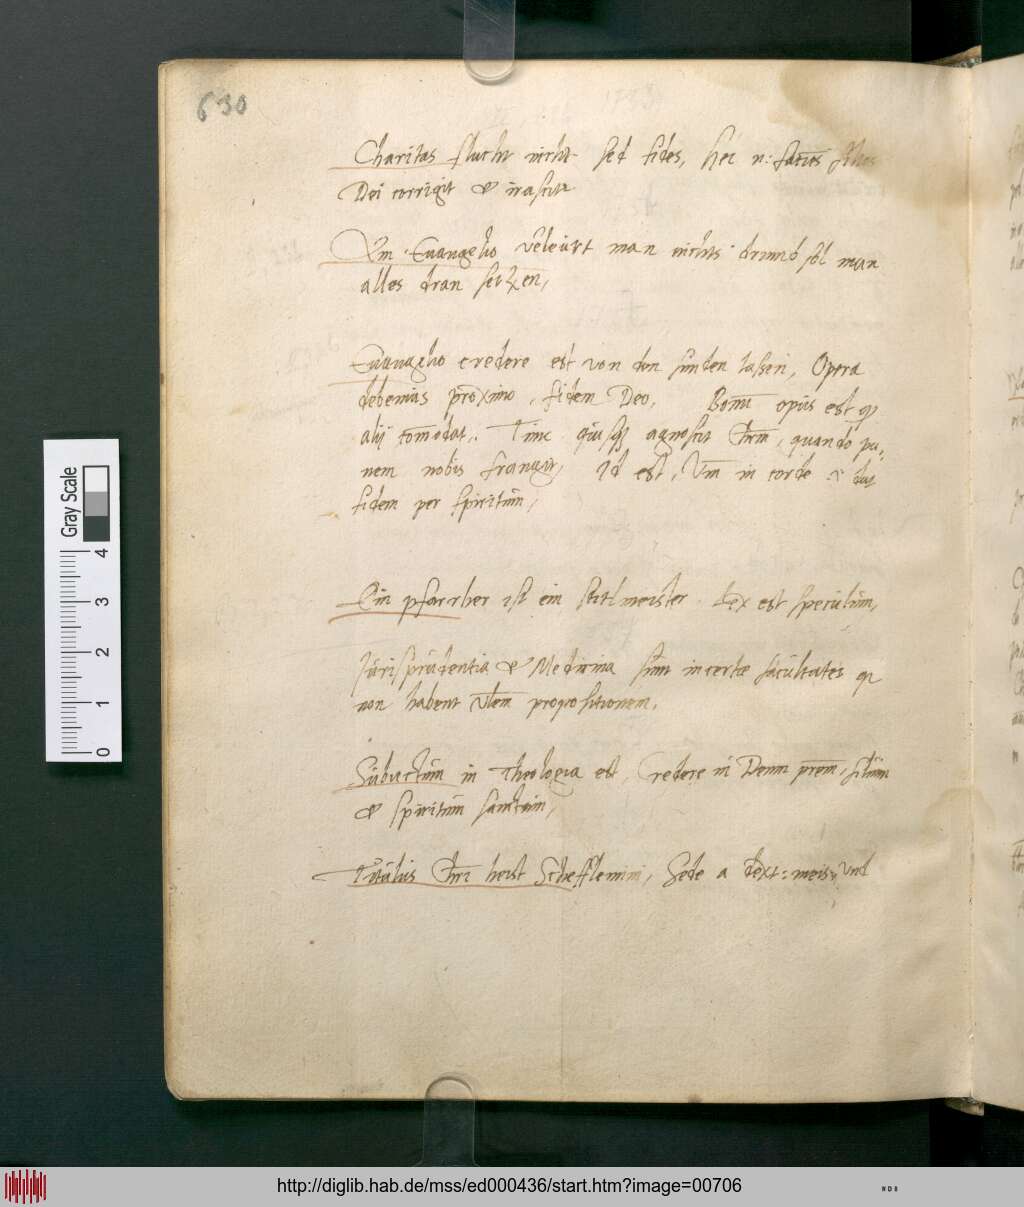 630
Charitas flucht nicht sed fides, hec n: faciēs filios
Dei corrigit & irascit~
Am Euangelio v~leurt man nichts drumb sol man
alles dran setzen,
Euangelio credere est von den sunden lassen, Opera
debemus proximo, fidem Deo, Bonū opus est qđ
alij cōmodat. Tunc quisq agnoscit Chrm, quando pa:
nem nobis frangit, Id est, Vm in corde & dat
fidem per spiritum,
Ein pfarrher ist ein meister. Lex est speculum,
Jurisprudentia & Medicina sunt incertæ facultates q
non habent vlem propositionem,
Subiectum in Theologia est, Credere in Deum prem, filium
& spiritum sanctum,
Titulus Chri heist Schefflemini, Sede a dext: meis, Vnd
Gray Scale
0 1 2 3 4
http://diglib.hab.de/mss/ed000436/start.htm?image=00706